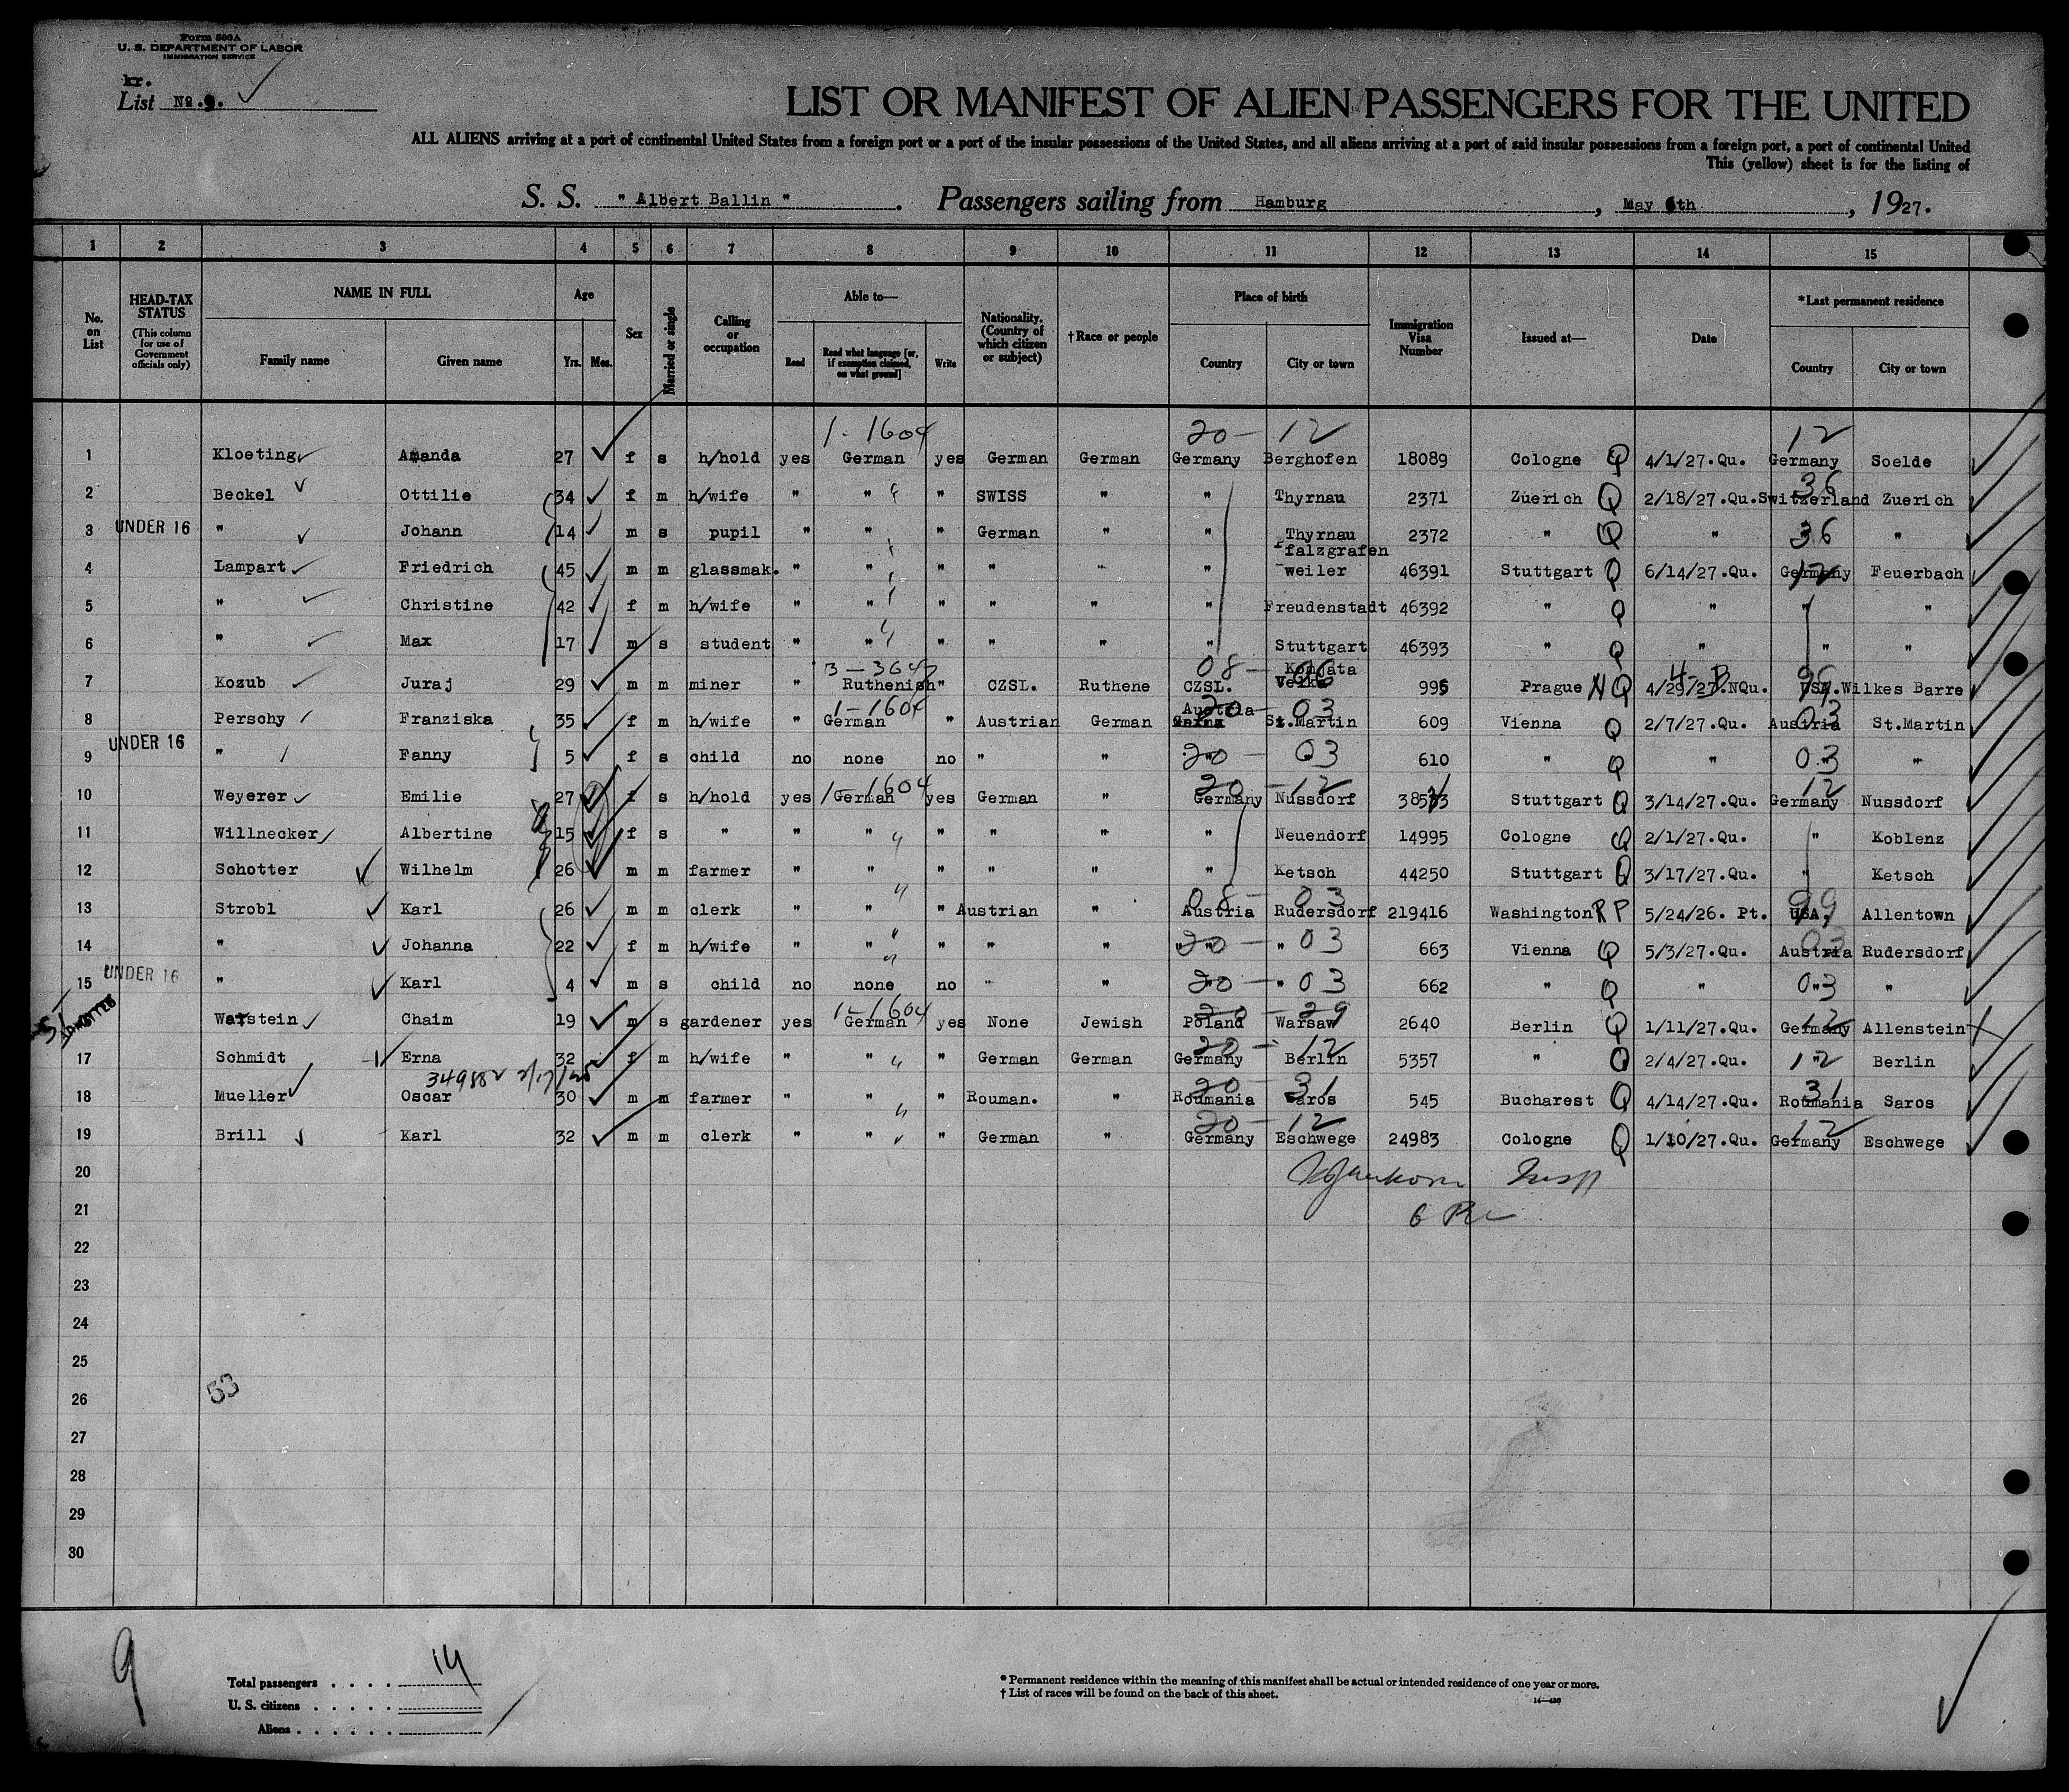 Form 500A
U. S. DEPARTMENT OF LABOR
IMMIGRATION SERVICE
kr.
List No. 9.
LIST OR MANIFEST OF ALIEN PASSENGERS FOR THE UNITED
ALL ALIENS arriving at a port of continental United States from a foreign port or a port of the insular possessions of the United States, and all aliens arriving at a port of said insular possessions from a foreign port, a port of continental United
This (yellow) sheet is for the listing of
S. S. " Albert Ballin " . Passengers sailing from Hamburg , May 6th , 1927.
1 2 3 4 5 6 7 8 9 10 11 12 13 14 15
No. on List
HEAD-TAX STATUS (This column for use of Government officials only)
NAME IN FULL
Family name Given name
Age
Yrs. Mos.
Sex
Married or single
Calling or occupation
Able to—
Read Read what language [or, if exemption claimed, on what ground] Write
Nationality. (Country of which citizen or subject)
†Race or people
Place of birth
Country City or town
Immigration Visa Number
Issued at—
Date
*Last permanent residence
Country City or town
1-1604 20- 12 12
1 Kloeting Amanda 27 f s h/hold yes German yes German German Germany Berghofen 18089 Cologne Q 4/1/27.Qu. Germany Soelde
2 Beckel Ottilie 34 f m h/wife " " " SWISS " " Thyrnau 2371 Zuerich Q 2/18/27.Qu. Switzerland 36 Zuerich
3 UNDER 16 " Johann 14 m s pupil " " " German " " Thyrnau 2372 " Q " 36 "
falzgrafen
4 Lampart Friedrich 45 m m glassmak. " " " " " " weiler 46391 Stuttgart Q 6/14/27.Qu. Germany 12 Feuerbach
5 " Christine 42 f m h/wife " " " " " " Freudenstadt 46392 " Q " " "
6 " Max 17 m s student " " " " " " Stuttgart 46393 " Q " " "
3-364 08-
7 Kozub Juraj 29 m m miner " Ruthenish " CZSL. Ruthene CZSL. 995 Prague NQ 4/29/27.NQu. USA. Wilkes Barre
1-1604 Austria 20- 03 03
8 Perschy Franziska 35 f m h/wife " German " Austrian German St.Martin 609 Vienna Q 2/7/27.Qu. Austria St.Martin
UNDER 16
9 " Fanny 5 f s child no none no " " 20- 03 610 " Q " 03 "
1-1604 20-12 12
10 Weyerer Emilie 27 f s h/hold yes German yes German " Germany Nussdorf Stuttgart Q 3/14/27.Qu. Germany Nussdorf
11 Willnecker Albertine 15 f s " " " " " " " Neuendorf 14995 Cologne Q 2/1/27.Qu. " Koblenz
12 Schotter Wilhelm 26 m m farmer " " " " " " Ketsch 44250 Stuttgart Q 3/17/27.Qu. " Ketsch
08- 03 99
13 Strobl Karl 26 m m clerk " " " Austrian " Austria Rudersdorf 219416 Washington RP 5/24/26. Pt. USA. Allentown
14 " Johanna 22 f m h/wife " " " " " 20- " 03 663 Vienna Q 5/3/27.Qu. Austria 03 Rudersdorf
UNDER 16
15 " Karl 4 m s child no none no " " 20- " 03 662 " Q " 03 "
ADMITTED 1-1604 20-29 12
Warstein Chaim 19 m s gardener yes German yes None Jewish Poland Warsaw 2640 Berlin Q 1/11/27.Qu. Germany Allenstein
20-12
17 Schmidt Erna 32 f m h/wife " " " German German Germany Berlin 5357 " Q 2/4/27.Qu. 12 Berlin
349882 20-31 31
18 Mueller Oscar 30 m m farmer " " " Rouman. " Roumania Saros 545 Bucharest Q 4/14/27.Qu. Roumania Saros
20-12 12
19 Brill Karl 32 m m clerk " " " German " Germany Eschwege 24983 Cologne Q 1/10/27.Qu. Germany Eschwege
20 Insp
21
22
23
24
25
26
53
27
28
29
30
9
Total passengers . . . . 14
U. S. citizens . . . . .
Aliens . . . . . .
* Permanent residence within the meaning of this manifest shall be actual or intended residence of one year or more.
† List of races will be found on the back of this sheet.